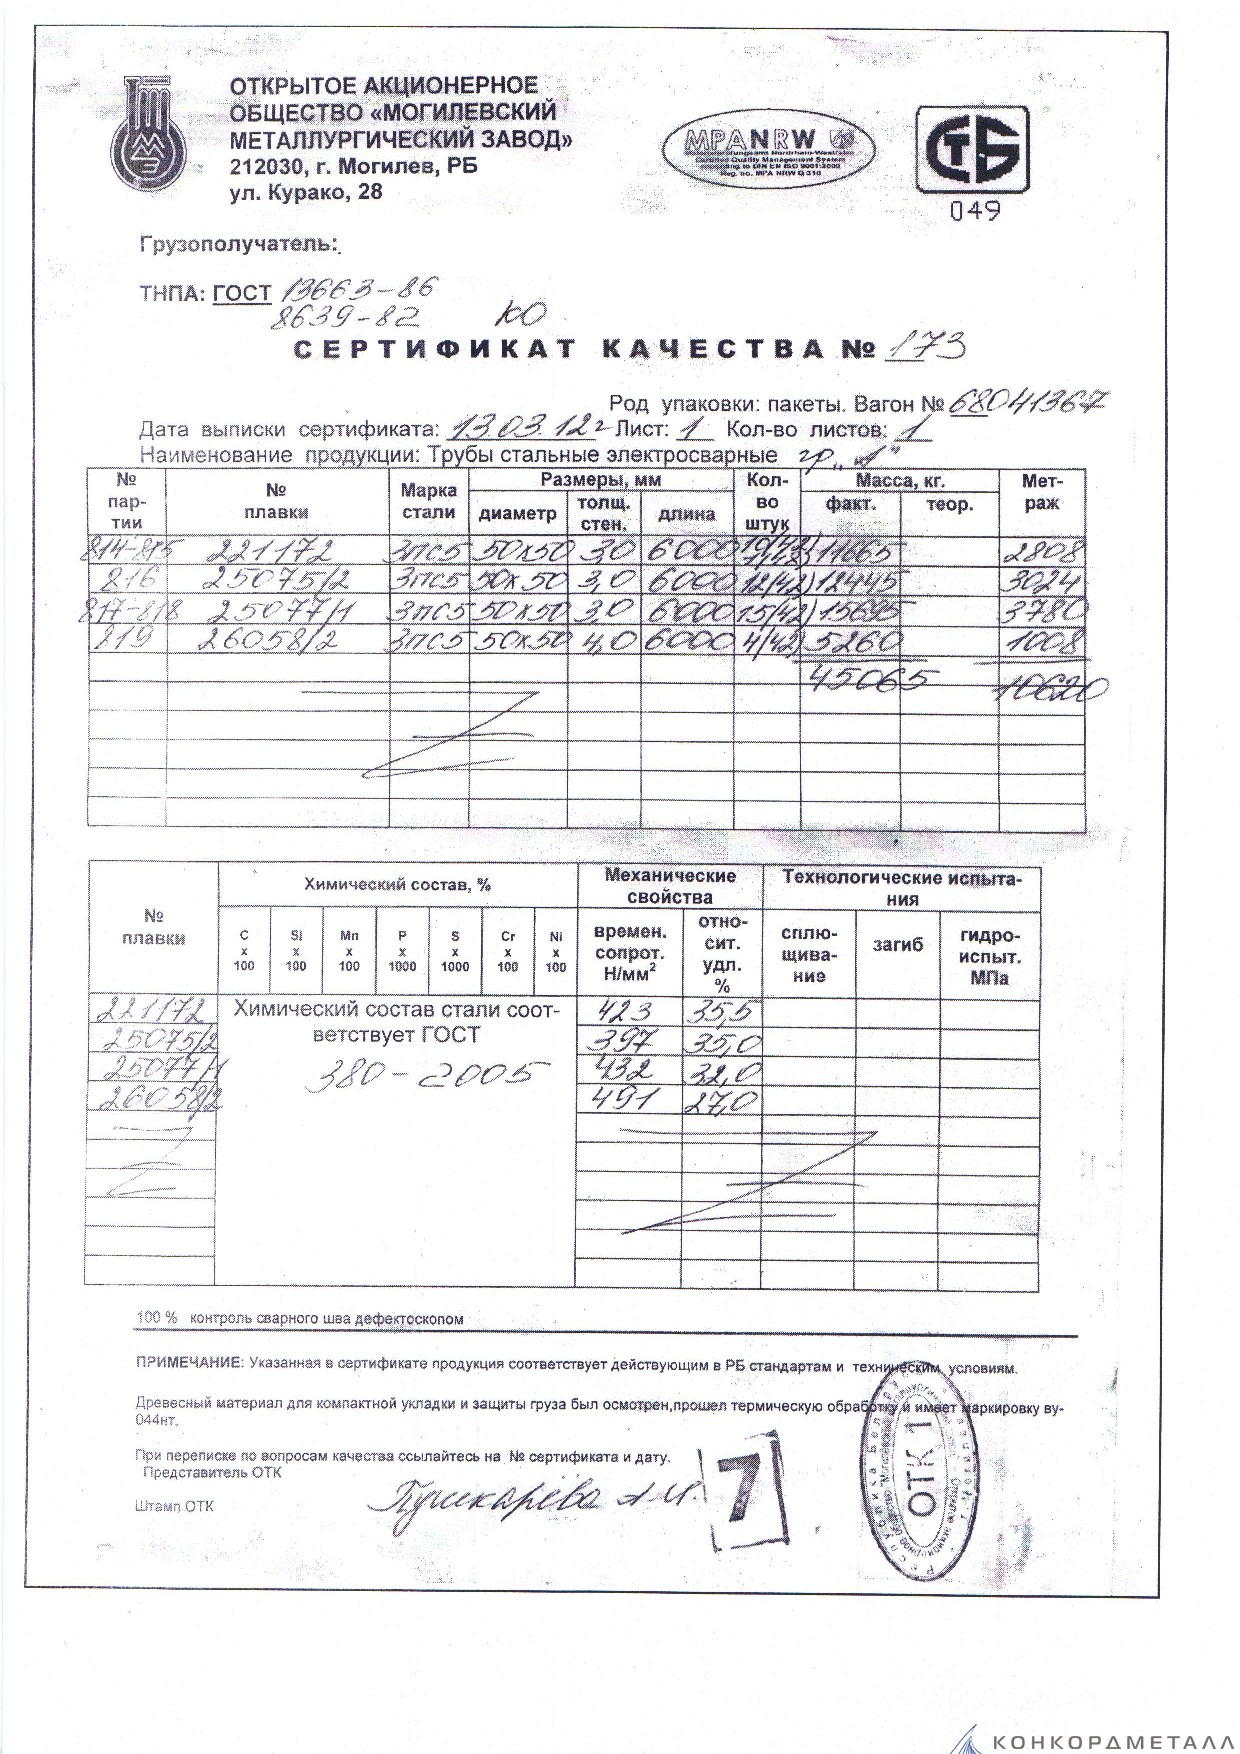 ОТКРЫТОЕ АКЦИОНЕРНОЕ
ОБЩЕСТВО «МОГИЛЕВСКИЙ
МЕТАЛЛУРГИЧЕСКИЙ ЗАВОД»
212030, г. Могилев, РБ
ул. Курако, 28
MPANRW
049
Грузополучатель:
ТНПА: ГОСТ 13663-86
8639-82 КО
СЕРТИФИКАТ КАЧЕСТВА № 173
Род упаковки: пакеты. Вагон № 68041367
Дата выписки сертификата: 13.03.12г Лист: 1 Кол-во листов: 1
Наименование продукции: Трубы стальные электросварные гр. „А"
№ партии № плавки Марка стали Размеры, мм диаметр толщ. стен. длина Кол-во штук Масса, кг. факт. теор. Метраж
814-815 221172 3пс5 50х50 3,0 6000 11665 2808
816 25075/2 3пс5 50х50 3,0 6000 12(42) 12445 3024
817-818 25077/1 3пс5 50х50 3,0 6000 15(42) 15695 3780
819 26058/2 3пс5 50х50 4,0 6000 4(42) 5260 1008
45065 10620
№ плавки Химический состав, % Механические свойства Технологические испытания
C x 100 Si x 100 Mn x 100 P x 1000 S x 1000 Cr x 100 Ni x 100 времен. сопрот. Н/мм² относит. удл. % сплющивание загиб гидроиспыт. МПа
221172 Химический состав стали соот- 423 35,5
25075/2 ветствует ГОСТ 397 35,0
25077/1 380-2005 432 32,0
26058/2 491 27,0
100 % контроль сварного шва дефектоскопом
ПРИМЕЧАНИЕ: Указанная в сертификате продукция соответствует действующим в РБ стандартам и техническим условиям.
Древесный материал для компактной укладки и защиты груза был осмотрен,прошел термическую обработку и имеет маркировку ву-
044нт.
При переписке по вопросам качества ссылайтесь на № сертификата и дату.
Представитель ОТК
Штамп ОТК Пушкарёва А.И.
7
ОТК 1
КОНКОРДМЕТАЛЛ